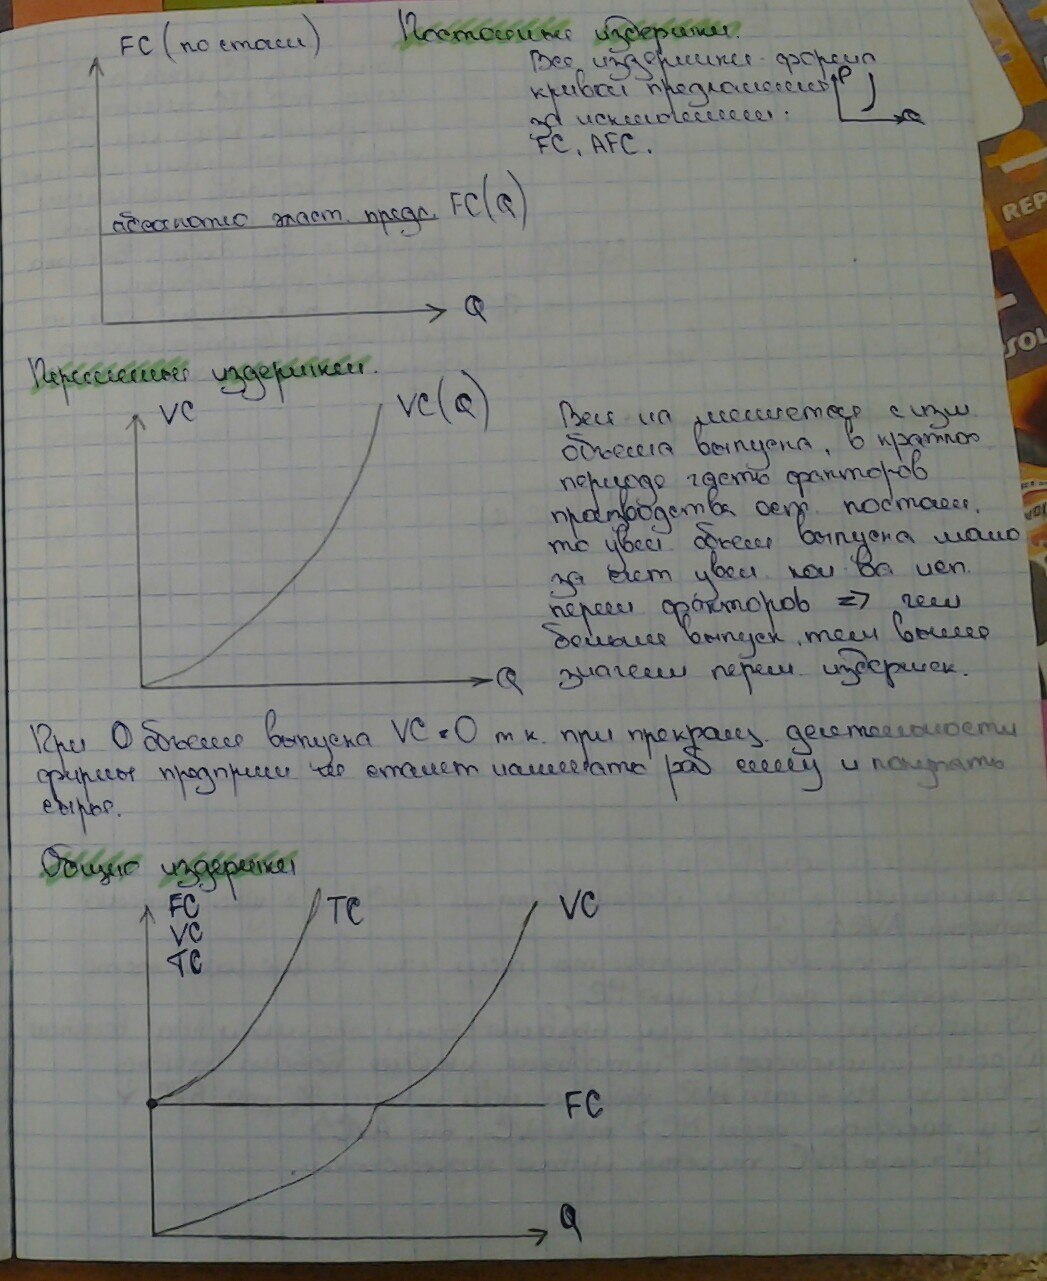 FC (постоян)
Постоянные издержки.
Все издержки форма
кривой предложения
за исключением:
FC, AFC.
P
Q
абсолютно эласт. предл. FC(Q)
Q
Переменные издержки.
VC
VC(Q)
Вел на меняется с изм
объема выпуска, в кратко
периоде часть факторов
производства ост. постоян.
то увел. объем выпуска можно
за счет увел. кол-ва исп.
перем факторов => чем
больше выпуск, тем выше
значен перем. издержек.
Q
При 0 объеме выпуска VC=0 т.к. при прекращ. деятельности
фирмы предприн не станет нанимать раб силу и покупать
сырье.
Общие издержки
FC
VC
TC
TC
VC
FC
Q
REP
SOL